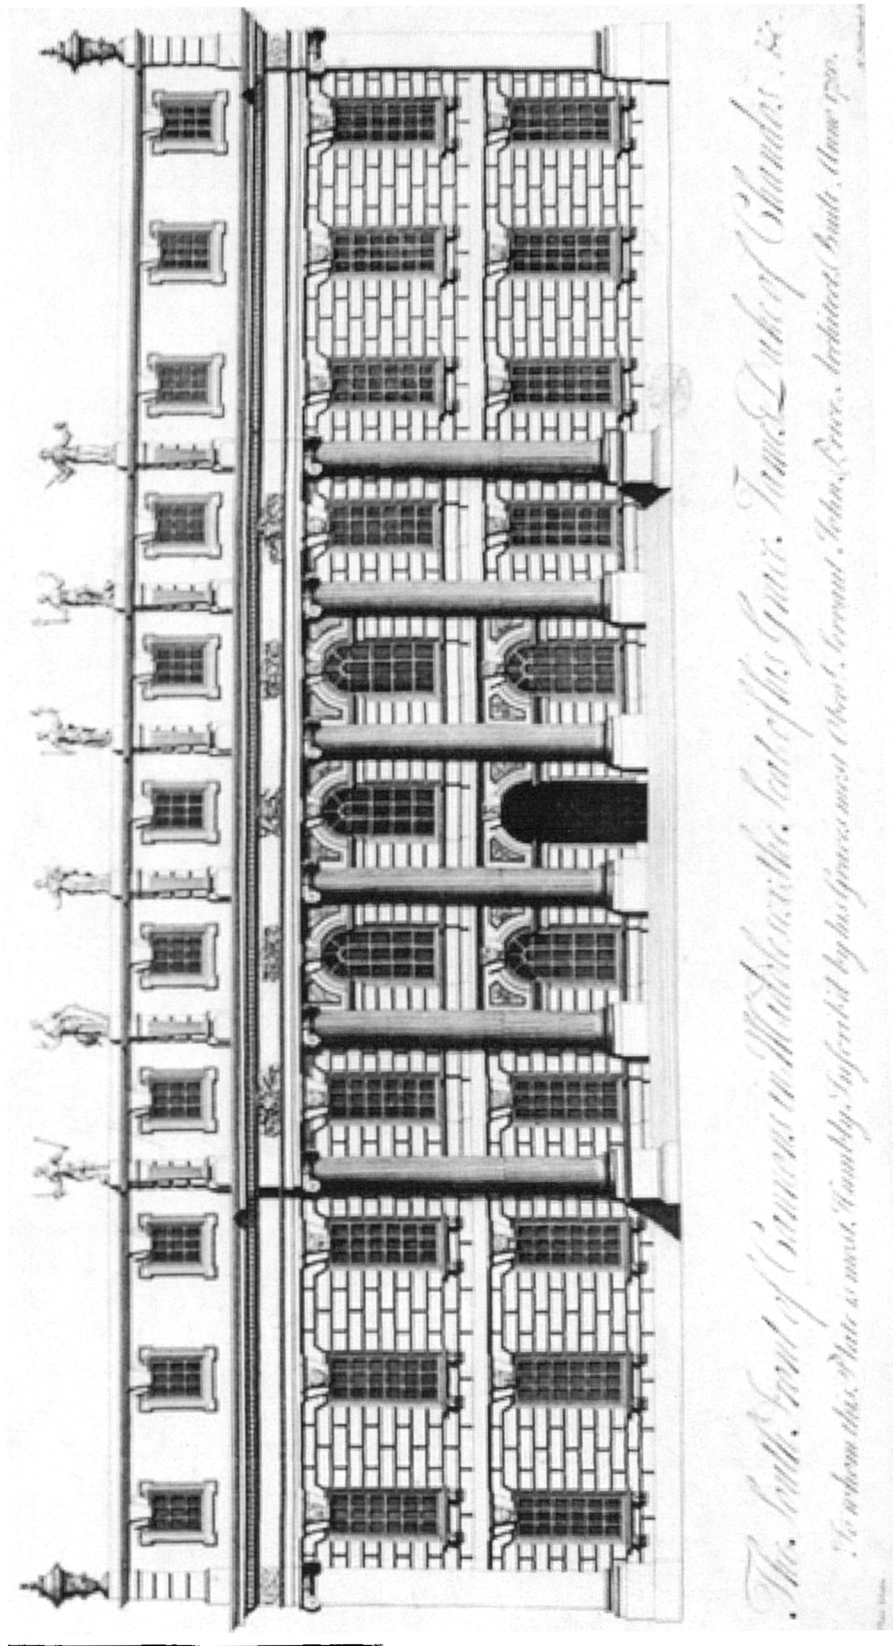 The South Front of Cannons in Middlesex the Seat of his Grace James Duke of Chandos &c.
To whom this Plate is most Humbly Inscrib'd by his Graces most Obed.t Servant John Price Architect Built Anno 1720.